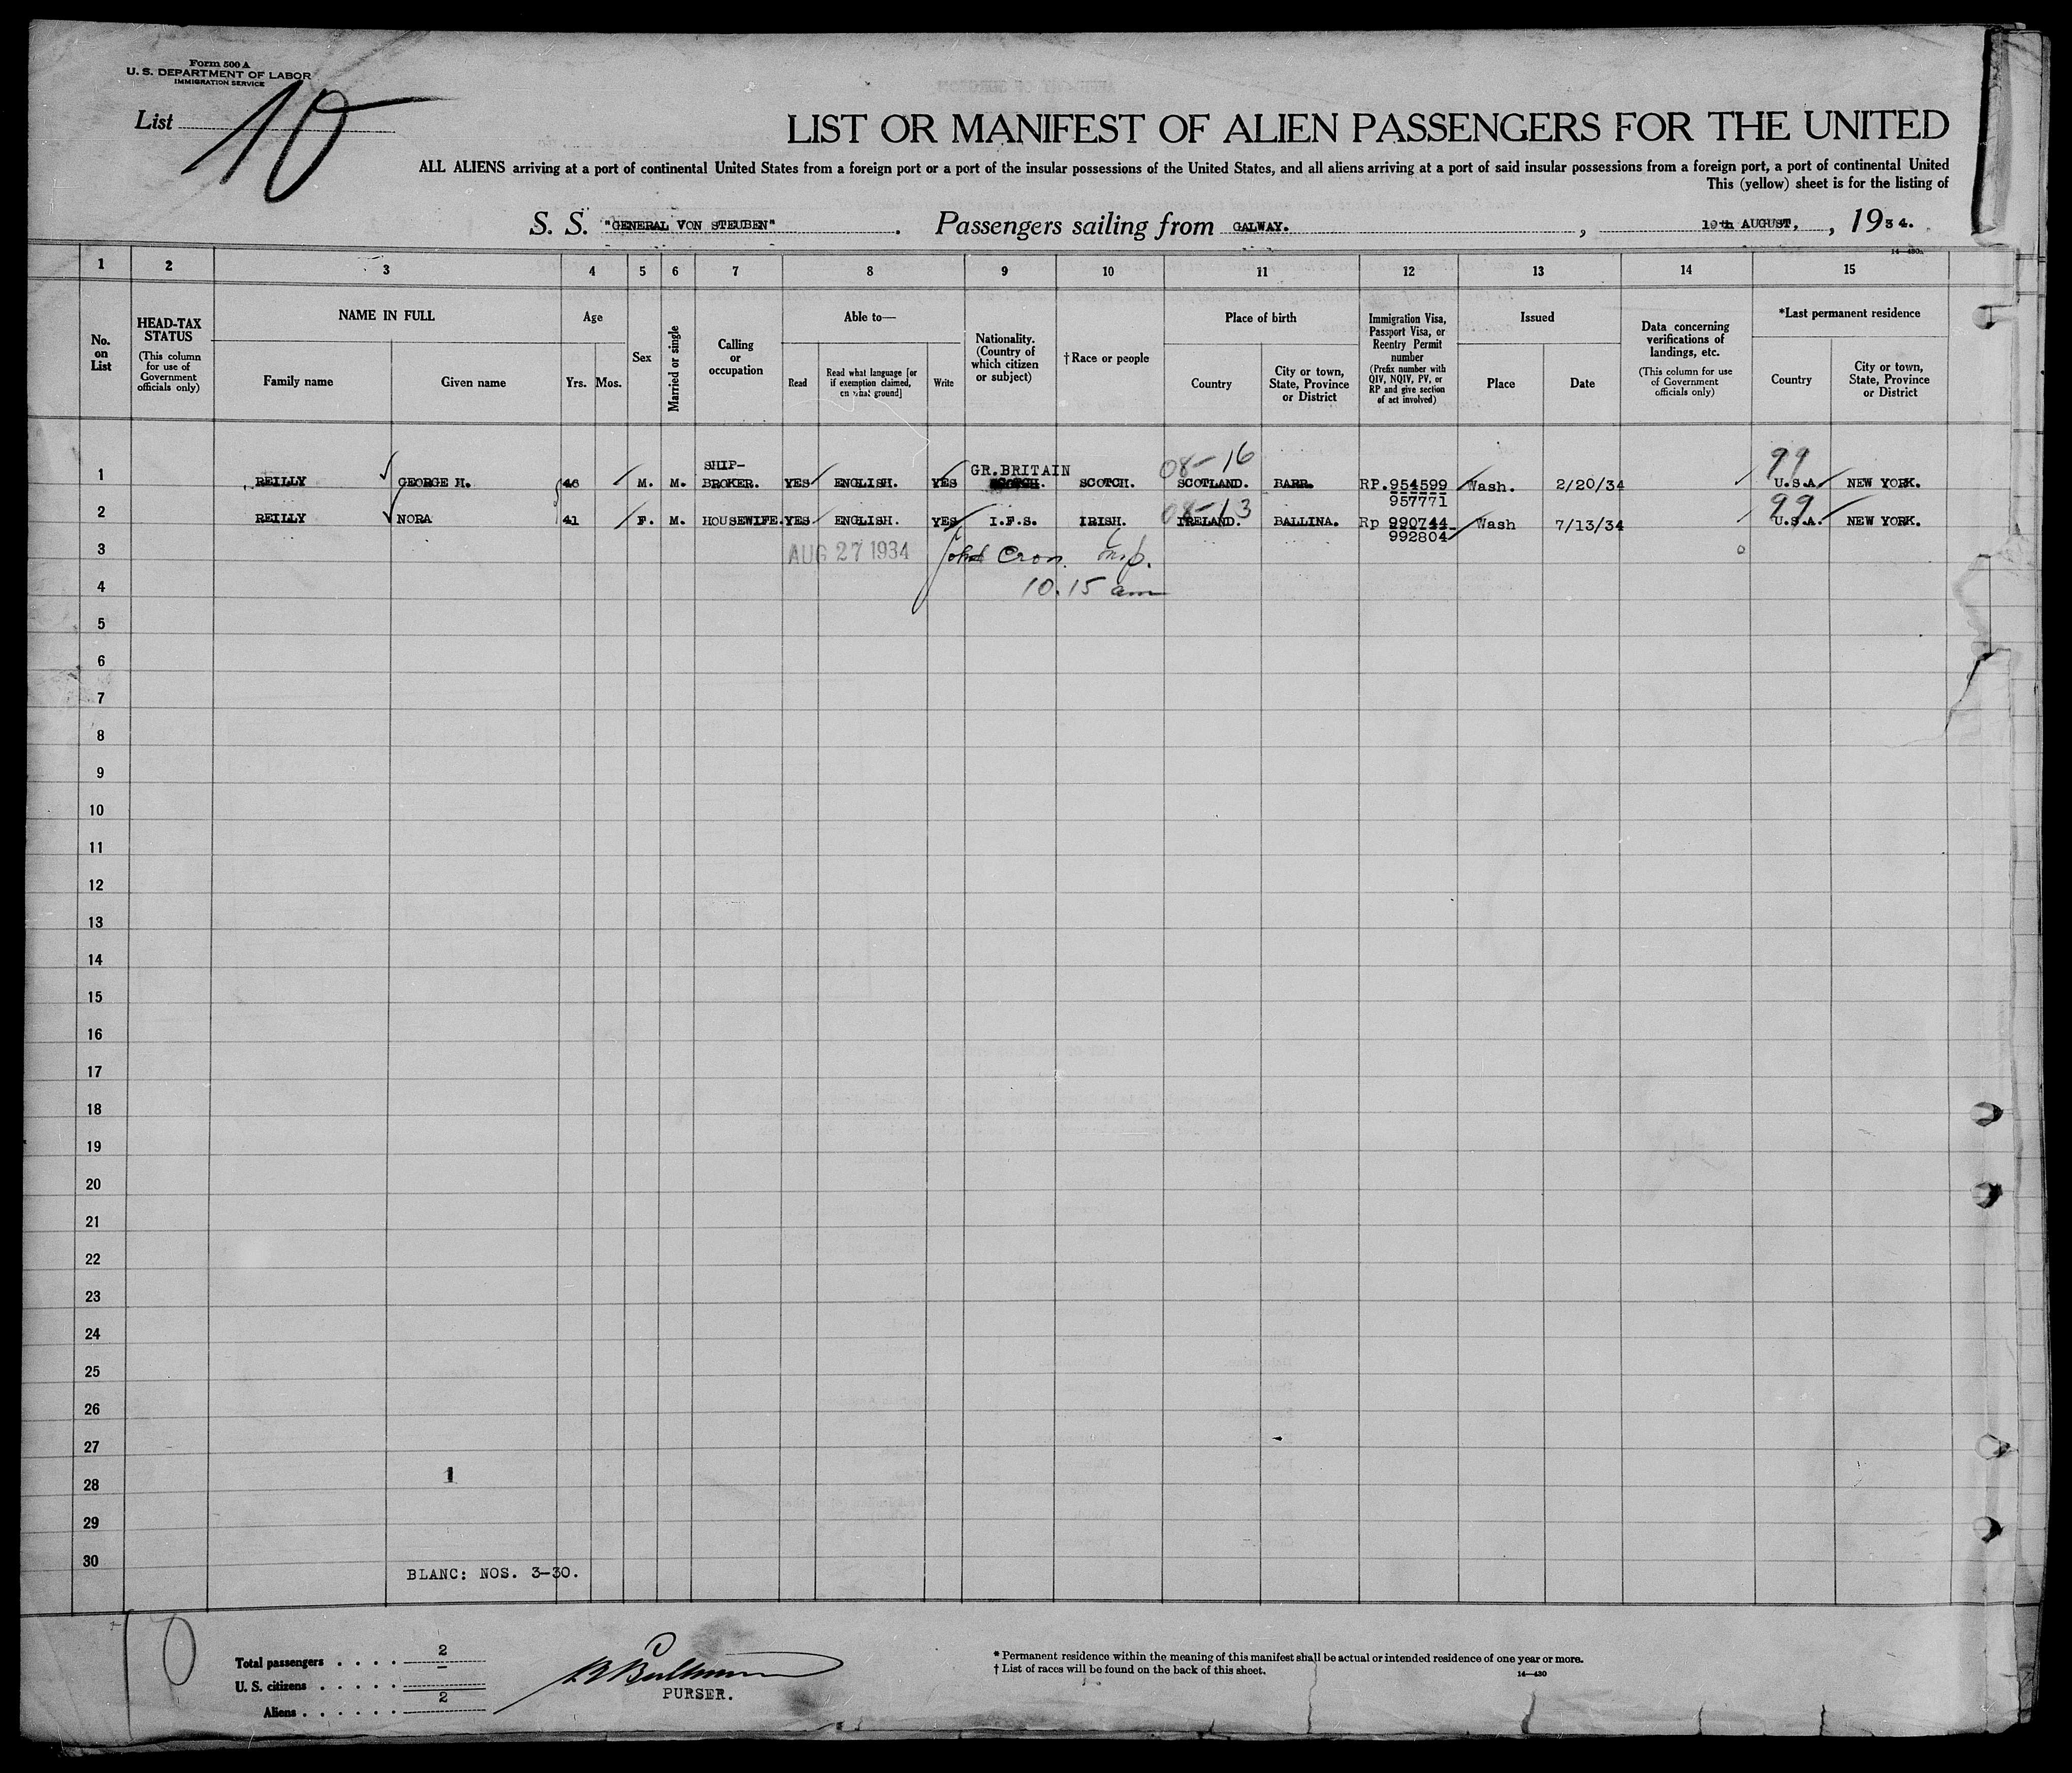 Form 500 A
U. S. DEPARTMENT OF LABOR
IMMIGRATION SERVICE
List 10
LIST OR MANIFEST OF ALIEN PASSENGERS FOR THE UNITED
ALL ALIENS arriving at a port of continental United States from a foreign port or a port of the insular possessions of the United States, and all aliens arriving at a port of said insular possessions from a foreign port, a port of continental United
This (yellow) sheet is for the listing of
S. S. "GENERAL VON STEUBEN". Passengers sailing from GALWAY. , 19th AUGUST, , 1934.
14—430A
1 2 3 4 5 6 7 8 9 10 11 12 13 14 15
No. on List
HEAD-TAX STATUS
(This column for use of Government officials only)
NAME IN FULL
Family name
Given name
Age
Yrs. Mos.
Sex
Married or single
Calling or occupation
Able to—
Read
Read what language [or if exemption claimed, on what ground]
Write
Nationality. (Country of which citizen or subject)
†Race or people
Place of birth
Country
City or town, State, Province or District
Immigration Visa, Passport Visa, or Reentry Permit number
(Prefix number with QIV, NQIV, PV, or RP and give section of act involved)
Issued
Place
Date
Data concerning verifications of landings, etc.
(This column for use of Government officials only)
*Last permanent residence
Country
City or town, State, Province or District
SHIP- GR.BRITAIN 08-16 99
1 REILLY GEORGE H. 46 M. M. BROKER. YES ENGLISH. YES SCOTCH. SCOTCH. SCOTLAND. BARR. RP.954599 Wash. 2/20/34 U.S.A. NEW YORK.
957771
08-13 99
2 REILLY NORA 41 F. M. HOUSEWIFE. YES ENGLISH. YES I.F.S. IRISH. IRELAND. BALLINA. Rp 990744 Wash 7/13/34 U.S.A. NEW YORK.
992804
3 AUG 27 1934 Cron Insp.
4 10.15 am
5
6
7
8
9
10
11
12
13
14
15
16
17
18
19
20
21
22
23
24
25
26
27
1
28
29
30
BLANC: NOS. 3-30.
Total passengers . . . . 2
U. S. citizens . . . . . —
Aliens . . . . . . 2
PURSER.
* Permanent residence within the meaning of this manifest shall be actual or intended residence of one year or more.
† List of races will be found on the back of this sheet.
14—430